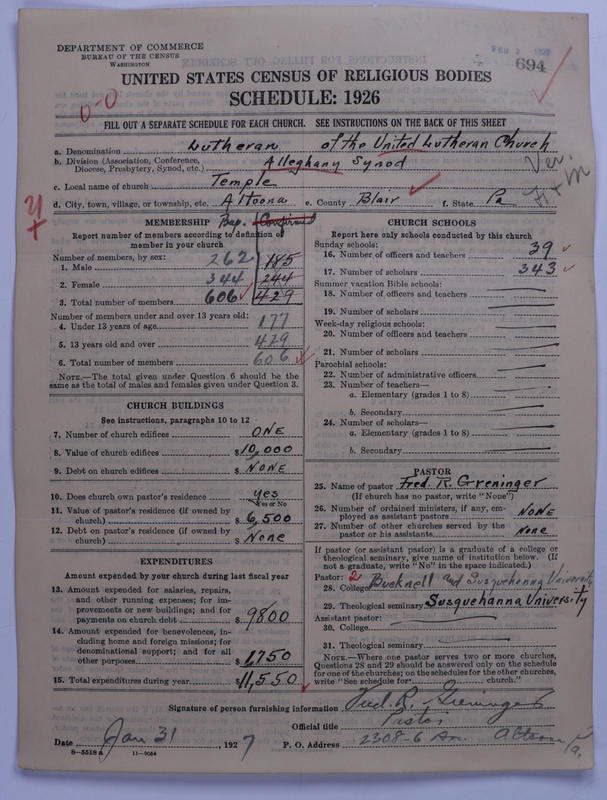 DEPARTMENT OF COMMERCE
BUREAU OF THE CENSUS
WASHINGTON
694
UNITED STATES CENSUS OF RELIGIOUS BODIES
SCHEDULE: 1926
0-0
FILL OUT A SEPARATE SCHEDULE FOR EACH CHURCH. SEE INSTRUCTIONS ON THE BACK OF THIS SHEET
a. Denomination Lutheran of the United Lutheran Church
b. Division (Association, Conference, Diocese, Presbytery, Synod, etc.) Alleghany Synod
Ver.
c. Local name of church Temple
H+M
d. City, town, village, or township, etc. Altoona e. County Blair f. State Pa
MEMBERSHIP Bap. Confirmed
Report number of members according to definition of
member in your church
Number of members, by sex:
1. Male 262 185
2. Female 344 244
3. Total number of members 606 429
Number of members under and over 13 years old:
4. Under 13 years of age 177
5. 13 years old and over 429
6. Total number of members 606
NOTE.—The total given under Question 6 should be the
same as the total of males and females given under Question 3.
CHURCH BUILDINGS
See instructions, paragraphs 10 to 12
7. Number of church edifices ONE
8. Value of church edifices $ 10,000
9. Debt on church edifices $ NONE
10. Does church own pastor's residence yes
Yes or No
11. Value of pastor's residence (if owned by
church) $ 6,500
12. Debt on pastor's residence (if owned by
church) $ None
EXPENDITURES
Amount expended by your church during last fiscal year
13. Amount expended for salaries, repairs,
and other running expenses; for im-
provements or new buildings; and for
payments on church debt $ 9800
14. Amount expended for benevolences, in-
cluding home and foreign missions; for
denominational support; and for all
other purposes $ 1750
15. Total expenditures during year $ 11,550
CHURCH SCHOOLS
Report here only schools conducted by this church
Sunday schools:
16. Number of officers and teachers 39
17. Number of scholars 343
Summer vacation Bible schools:
18. Number of officers and teachers
19. Number of scholars
Week-day religious schools:
20. Number of officers and teachers
21. Number of scholars
Parochial schools:
22. Number of administrative officers
23. Number of teachers—
a. Elementary (grades 1 to 8)
b. Secondary
24. Number of scholars—
a. Elementary (grades 1 to 8)
b. Secondary
PASTOR
25. Name of pastor Fred. R. Greninger
(If church has no pastor, write "None")
26. Number of ordained ministers, if any, em-
ployed as assistant pastors NONE
27. Number of other churches served by the
pastor or his assistants None
If pastor (or assistant pastor) is a graduate of a college or
theological seminary, give name of institution below. (If
not a graduate, write "No" in the space indicated.)
Pastor: 2
28. College Bucknell and Susquehanna University
29. Theological seminary Susquehanna University
Assistant pastor:
30. College
31. Theological seminary
NOTE.—Where one pastor serves two or more churches,
Questions 28 and 29 should be answered only on the schedule
for one of the churches; on the schedules for the other churches,
write "See schedule for church."
Signature of person furnishing information Fred. R. Greninger
Official title Pastor
Date Jan 31, 1927 P. O. Address 2308-6 Ave. Altoona Pa.
8-5518 a 11-9054